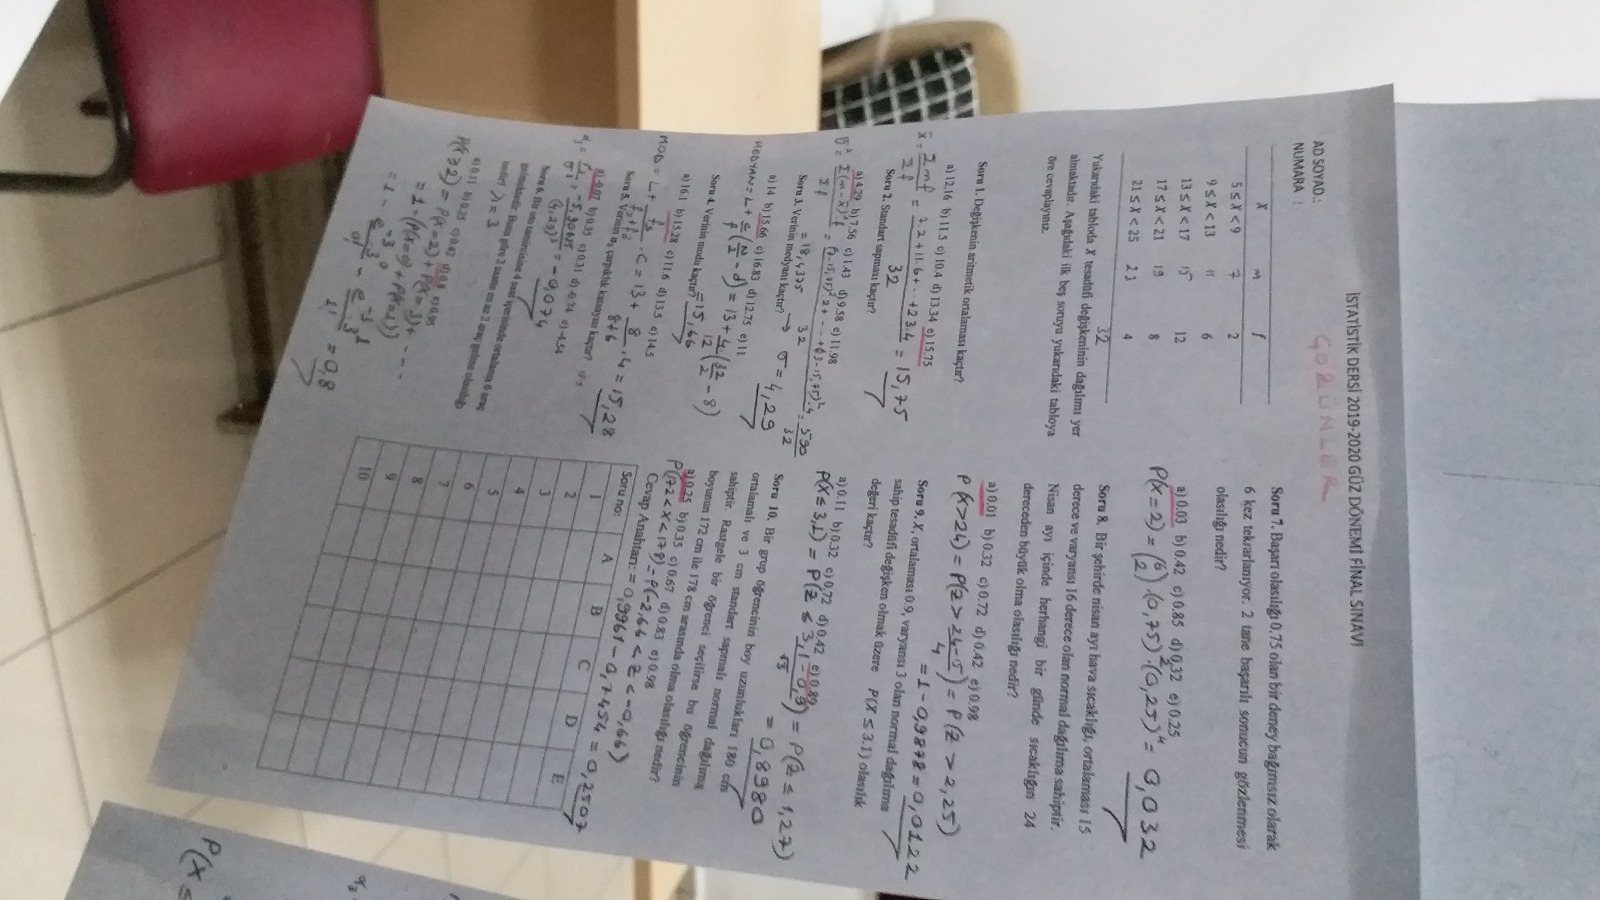 İSTATİSTİK DERSİ 2019-2020 GÜZ DÖNEMİ FİNAL SINAVI
ÇÖZÜMLER
AD SOYAD.:
NUMARA :
X m f
5 ≤ X < 9 7 2
9 ≤ X < 13 11 6
13 ≤ X < 17 15 12
17 ≤ X < 21 19 8
21 ≤ X < 25 23 4
32
Yukarıdaki tabloda X tesadüfi değişkeninin dağılımı yer
almaktadır. Aşağıdaki ilk beş soruyu yukarıdaki tabloya
öre cevaplayınız.
Soru 1. Değişkenin aritmetik ortalaması kaçtır?
a) 12.16 b) 11.5 c) 10.4 d) 13.34 e) 15.75
x̄ = Σmf / Σf = 7.2+11.6+...+23.4 / 32 = 15,75
Soru 2. Standart sapması kaçtır?
a) 4.29 b) 7.56 c) 1.43 d) 9.58 e) 11.98
σ² = Σ(m-x̄)²f / Σf = (7-15,75)².2+---+(23-15,75)².4 / 32 = 590 / 32
= 18,4375 → σ = 4,29
Soru 3. Verinin medyanı kaçtır?
a) 14 b) 15.66 c) 16.83 d) 12.75 e) 11
MEDYAN = L + c/f (N/2 - d) = 13 + 4/12 (32/2 - 8)
= 15,66
Soru 4. Verinin modu kaçtır?
a) 16.1 b) 15.28 c) 11.6 d) 13.5 e) 14.5
MOD = L + . C = 13 + 8 / 8+6 . 4 = 15,28
Soru 5. Verinin α₃ çarpıklık katsayısı kaçtır?
a) -0.07 b) 0.95 c) 0.31 d) -0.74 e) -4.54
= -0,074
Soru 6. Bir oto tamircisine 4 saat içerisinde ortalama 6 araç
gelmektedir. Buna göre 2 saatte en az 2 araç gelme olasılığı
nedir? λ = 3
a) 0.11 b) 0.25 c) 0.42 d) 0.8 e) 0.95
P(X≥2) = P(X=2) + P(X=3) + ----
= 1 - (P(X=0) + P(X=1))
= 1 - e⁻³.3⁰ / 0! - e⁻³.3¹ / 1! = 0,8
Soru 7. Başarı olasılığı 0.75 olan bir deney bağımsız olarak
6 kez tekrarlanıyor. 2 tane başarılı sonucun gözlenmesi
olasılığı nedir?
a) 0.03 b) 0.42 c) 0.85 d) 0.32 e) 0.25
P(X=2) = (6 2) .(0,75)².(0,25)⁴ = 0,032
Soru 8. Bir şehirde nisan ayı hava sıcaklığı, ortalaması 15
derece ve varyansı 16 derece olan normal dağılıma sahiptir.
Nisan ayı içinde herhangi bir günde sıcaklığın 24
dereceden büyük olma olasılığı nedir?
a) 0.01 b) 0.32 c) 0.72 d) 0.42 e) 0.98
P(X>24) = P(Z > 24-15 / 4) = P(Z > 2,25)
= 1 - 0,9878 = 0,0122
Soru 9. X, ortalaması 0.9, varyansı 3 olan normal dağılıma
sahip tesadüfi değişken olmak üzere P(X ≤ 3.1) olasılık
değeri kaçtır?
a) 0.11 b) 0.32 c) 0.72 d) 0.42 e) 0.89
P(X≤3,1) = P(Z ≤ 3,1-0,9 / √3) = P(Z ≤ 1,27)
= 0,8980
Soru 10. Bir grup öğrencinin boy uzunlukları 180 cm
ortalamalı ve 3 cm standart sapmalı normal dağılıma
sahiptir. Rastgele bir öğrenci seçilirse bu öğrencinin
boyunun 172 cm ile 178 cm arasında olma olasılığı nedir?
a) 0.25 b) 0.35 c) 0.67 d) 0.83 e) 0.98
P(172<X<178) = P(-2,66 < Z < -0,66)
= 0,9961 - 0,7454 = 0,2507
Cevap Anahtarı:
Soru no: A B C D E
1
2
3
4
5
6
7
8
9
10
α₃
P(X ≤